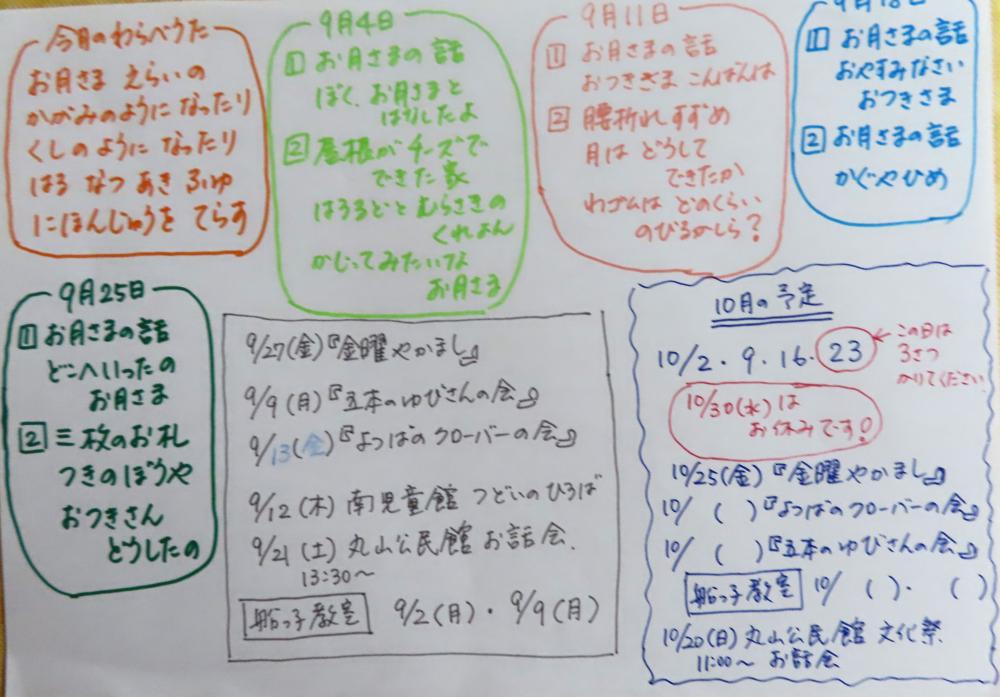 今月のわらべうた
お月さま えらいの
かがみのように なったり
くしのように なったり
はる なつ あき ふゆ
にほんじゅうを てらす
9月4日
1 お月さまの話
ぼく、お月さまと
はなしたよ
2 屋根がチーズで
できた家
はろるどと むらさきの
くれよん
かじってみたいな
お月さま
9月11日
1 お月さまの話
おつきさま こんばんは
2 腰折れすずめ
月は どうして
できたか
わゴムは どのくらい
のびるかしら?
9月18日
1 お月さまの話
おやすみなさい
おつきさま
2 お月さまの話
かぐやひめ
9月25日
1 お月さまの話
どこへいったの
お月さま
2 三枚のお札
つきのぼうや
おつきさん
どうしたの
9/27(金)『金曜やかまし』
9/9(月)『五本のゆびさんの会』
9/13(金)『よつばのクローバーの会』
9/12(木) 南児童館 つどいのひろば
9/21(土) 丸山公民館 お話会、
13:30~
船っ子教室 9/2(月)・9/9(月)
10月の予定
10/2・9・16・23
←この日は
3さつ
かりてください
10/30(水)は
お休みです!
10/25(金)『金曜やかまし』
10/ ( )『よつばのクローバーの会』
10/ ( )『五本のゆびさんの会』
船っ子教室 10/ ( )・( )
10/20(日) 丸山公民館 文化祭
11:00~ お話会